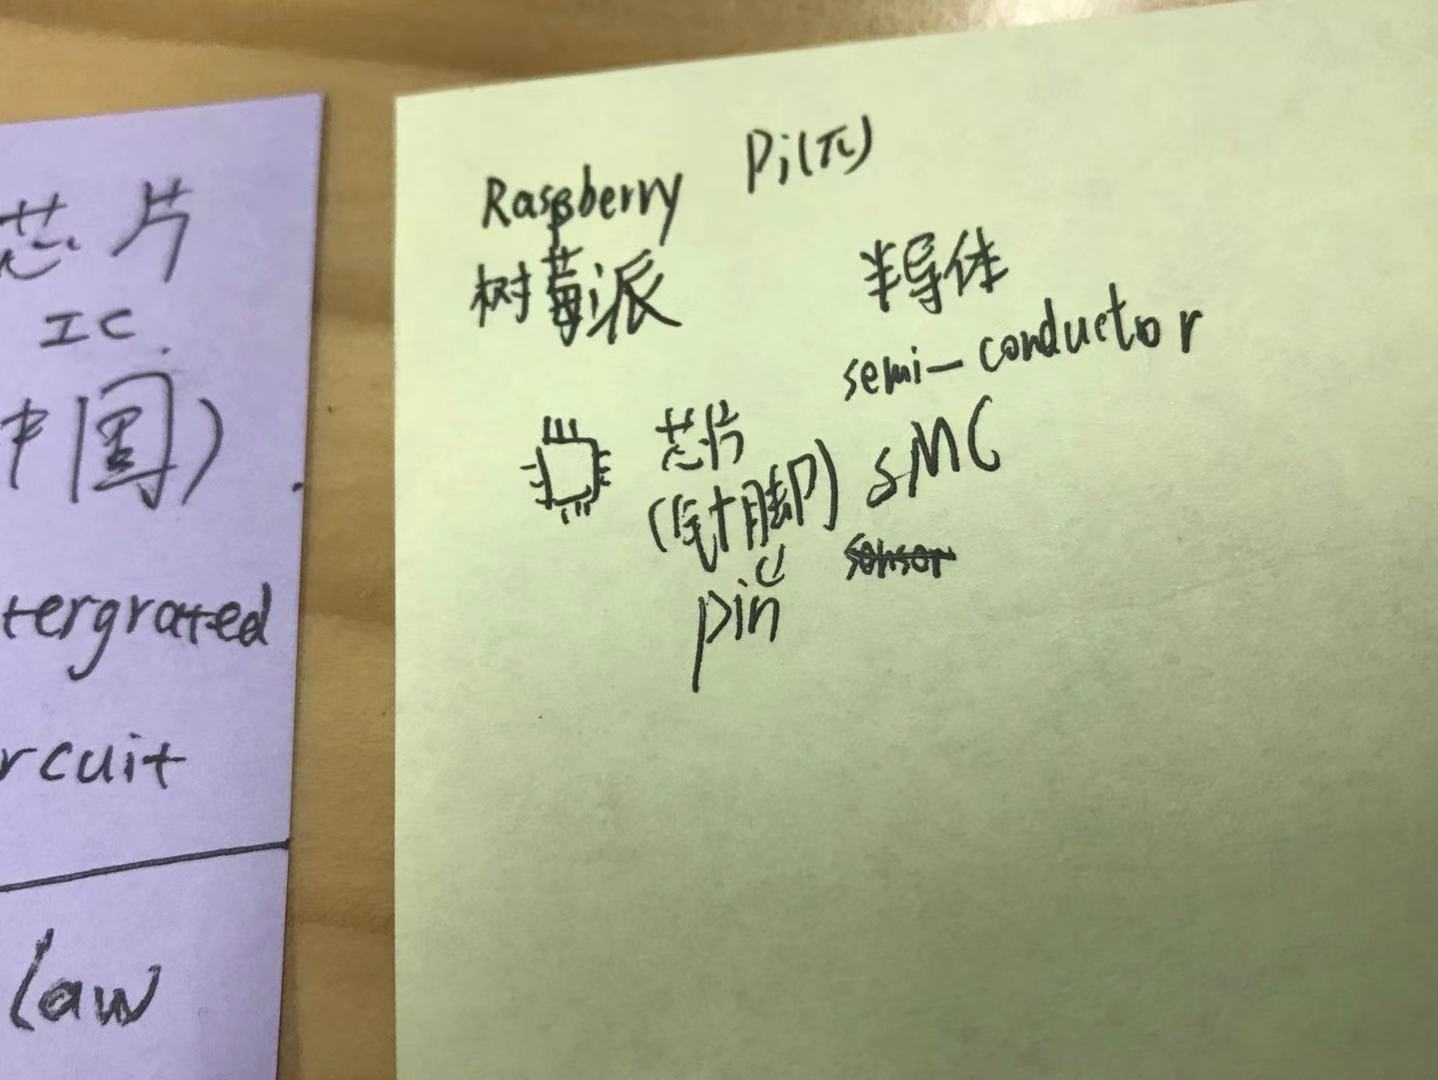 芯片
IC
中国)
tergrated
rcuit
law
Raspberry Pi(π)
树莓派
半导体
semi-conductor
芯片
(针脚)
SMC
pin